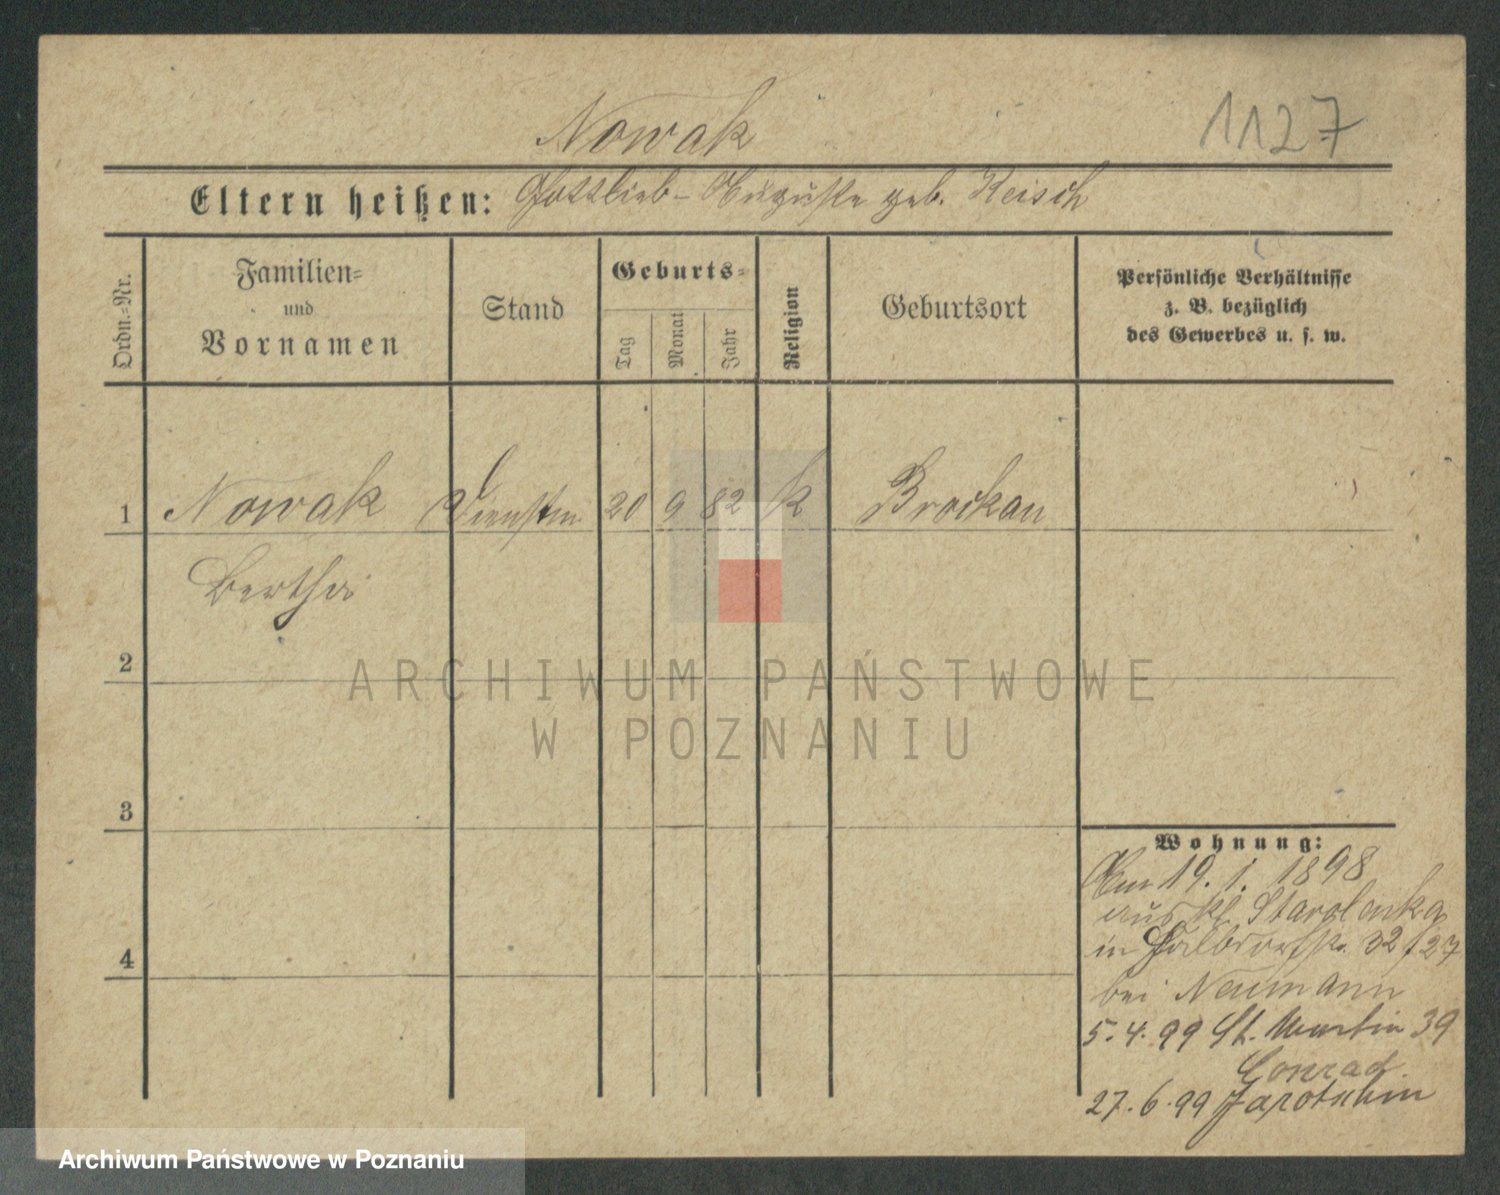 Nowak
1127
Eltern heißen: Gottlieb - Auguste geb. Keisch
Ordn.-Nr.
Familien-
und
Vornamen
Stand
Geburts-
Tag
Monat
Jahr
Religion
Geburtsort
Persönliche Verhältnisse
z. B. bezüglich
des Gewerbes u. s. w.
1 Nowak Dienstm 20 9 82 k Brockau
Bertha
2
ARCHIWUM PAŃSTWOWE
W POZNANIU
3
4
Wohnung:
Am 19. 1. 1898
aus kl Starolenka
in 32/27
bei Neumann
5. 4. 99 St. Martin 39
Conrad
27. 6. 99 Jarotschin
Archiwum Państwowe w Poznaniu